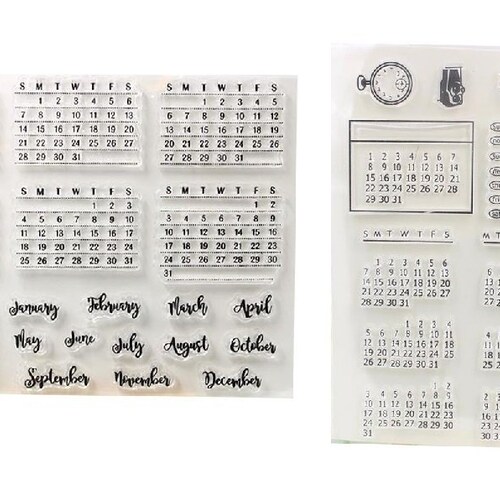 S M T W T F S
1 2 3 4 5 6
7 8 9 10 11 12 13
14 15 16 17 18 19 20
21 22 23 24 25 26 27
28 29 30 31
S M T W T F S
S M T W T F S
1 2 3
4 5 6 7 8 9 10
11 12 13 14 15 16 17
18 19 20 21 22 23 24
25 26 27 28 29 30 31
S M T W T F S
1 2
3 4 5 6 7 8 9
10 11 12 13 14 15 16
17 18 19 20 21 22 23
24 25 26 27 28 29 30
31
January February March April
May June July August October
September November December
1 2 3 4 5 6 7
8 9 10 11 12 13 14
15 16 17 18 19 20 21
22 23 24 25 26 27 28
29 30 31
S M T W T F S
1 2 3 4 5 6
7 8 9 10 11 12 13
14 15 16 17 18 19 20
21 22 23 24 25 26 27
28 29 30 31
1 2 3 4
5 6 7 8 9 10 11
12 13 14 15 16 17 18
19 20 21 22 23 24 25
26 27 28 29 30 31
1 2
3 4 5 6 7 8 9
10 11 12 13 14 15 16
17 18 19 20 21 22 23
24 25 26 27 28 29 30
31